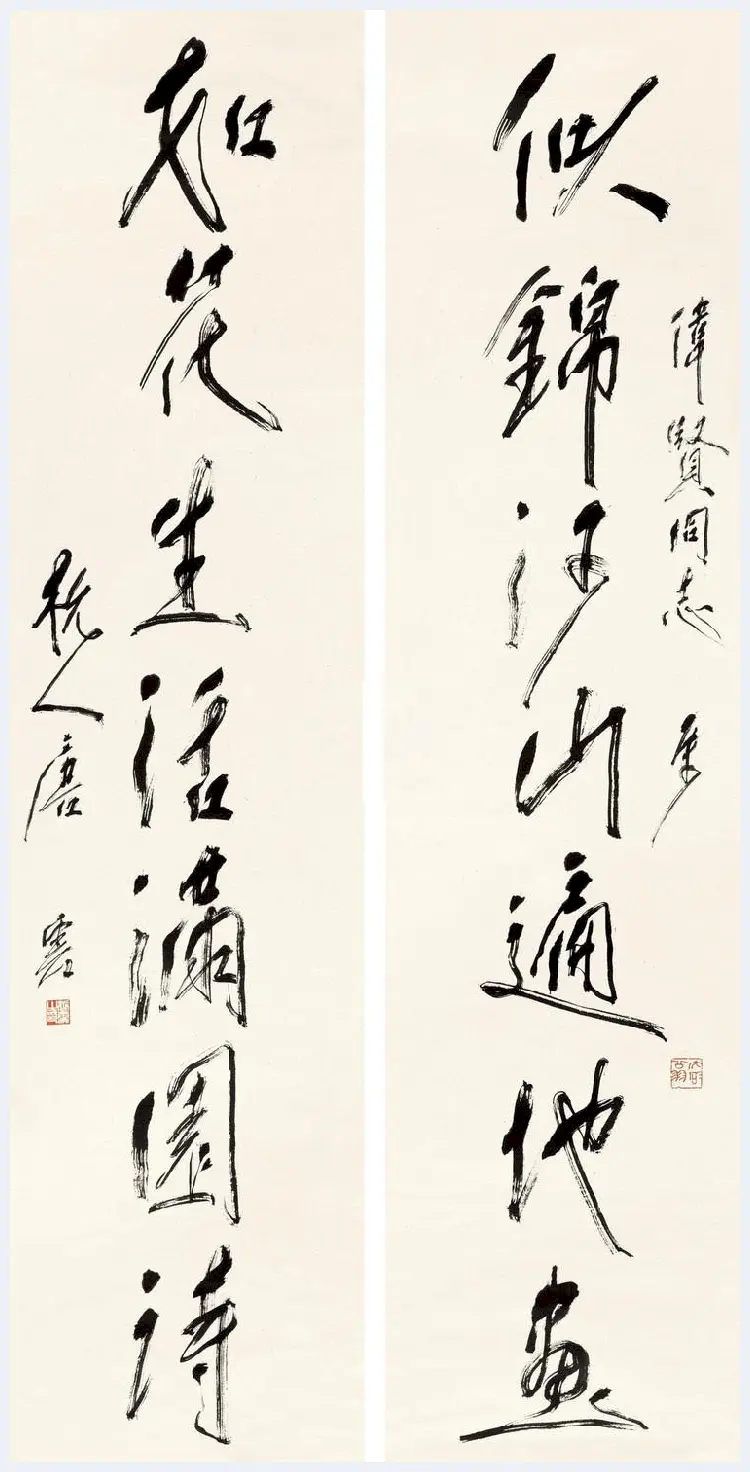 偉賢同志
似錦江山遍地畫
如花生活滿園詩
杭人唐雲